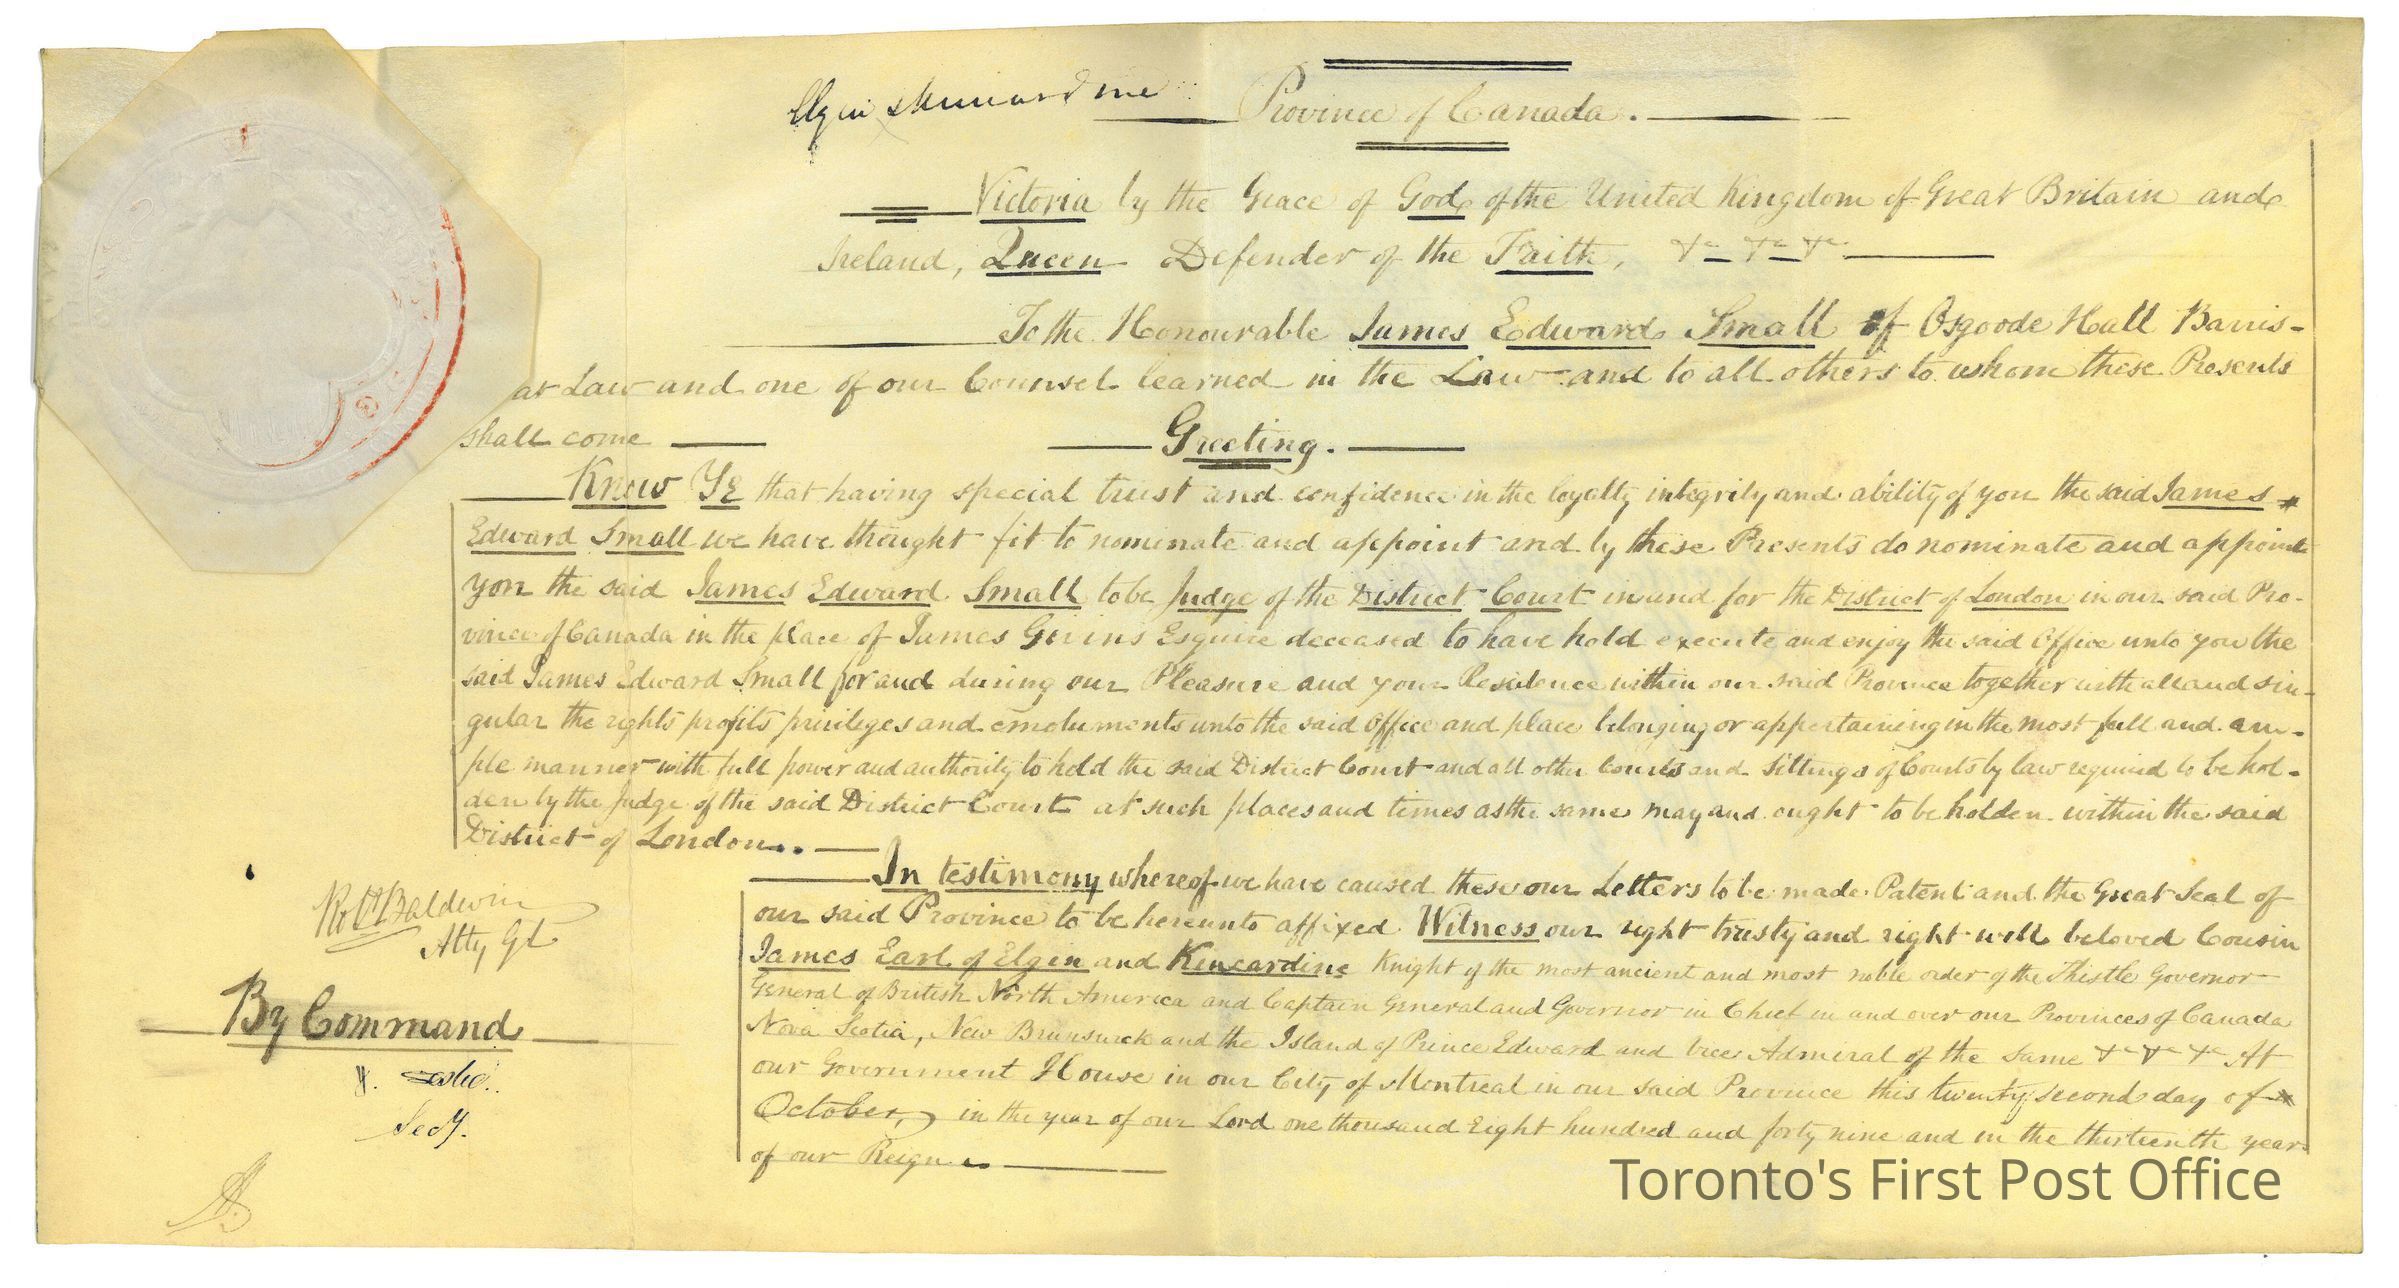 Elgin & Kincardine
Province of Canada.
Victoria by the Grace of God of the United Kingdom of Great Britain and
Ireland, Queen Defender of the Faith, &c &c &c
To the Honourable James Edward Small of Osgoode Hall Barris-
at Law and one of our Counsel learned in the Law and to all others to whom these Presents
shall come Greeting.
Know Ye that having special trust and confidence in the loyalty integrity and ability of you the said James
Edward Small we have thought fit to nominate and appoint and by these Presents do nominate and appoint
you the said James Edward Small to be Judge of the District Court in and for the District of London in our said Pro-
vince of Canada in the place of James Givins Esquire deceased to have hold execute and enjoy the said Office unto you the
said James Edward Small for and during our Pleasure and your Residence within our said Province together with all and sin-
gular the rights profits privileges and emoluments unto the said Office and place belonging or appertaining in the most full and am-
ple manner with full power and authority to hold the said District Court and all other Courts and Sittings of Courts by law required to be hol-
den by the Judge of the said District Court at such places and times as the same may and ought to be holden within the said
District of London.
In testimony whereof we have caused these our Letters to be made Patent and the Great Seal of
our said Province to be hereunto affixed Witness our right trusty and right well beloved Cousin
James Earl of Elgin and Kincardine Knight of the most ancient and most noble order of the Thistle Governor
General of British North America and Captain General and Governor in Chief in and over our Provinces of Canada
Nova Scotia, New Brunswick and the Island of Prince Edward and Vice Admiral of the same &c &c &c At
our Government House in our City of Montreal in our said Province this twenty second day of
October, in the year of our Lord one thousand Eight hundred and forty nine and in the thirteenth year
of our Reign
Robt Baldwin
Atty Gl
By Command
J. Leslie.
Secy.
Toronto's First Post Office